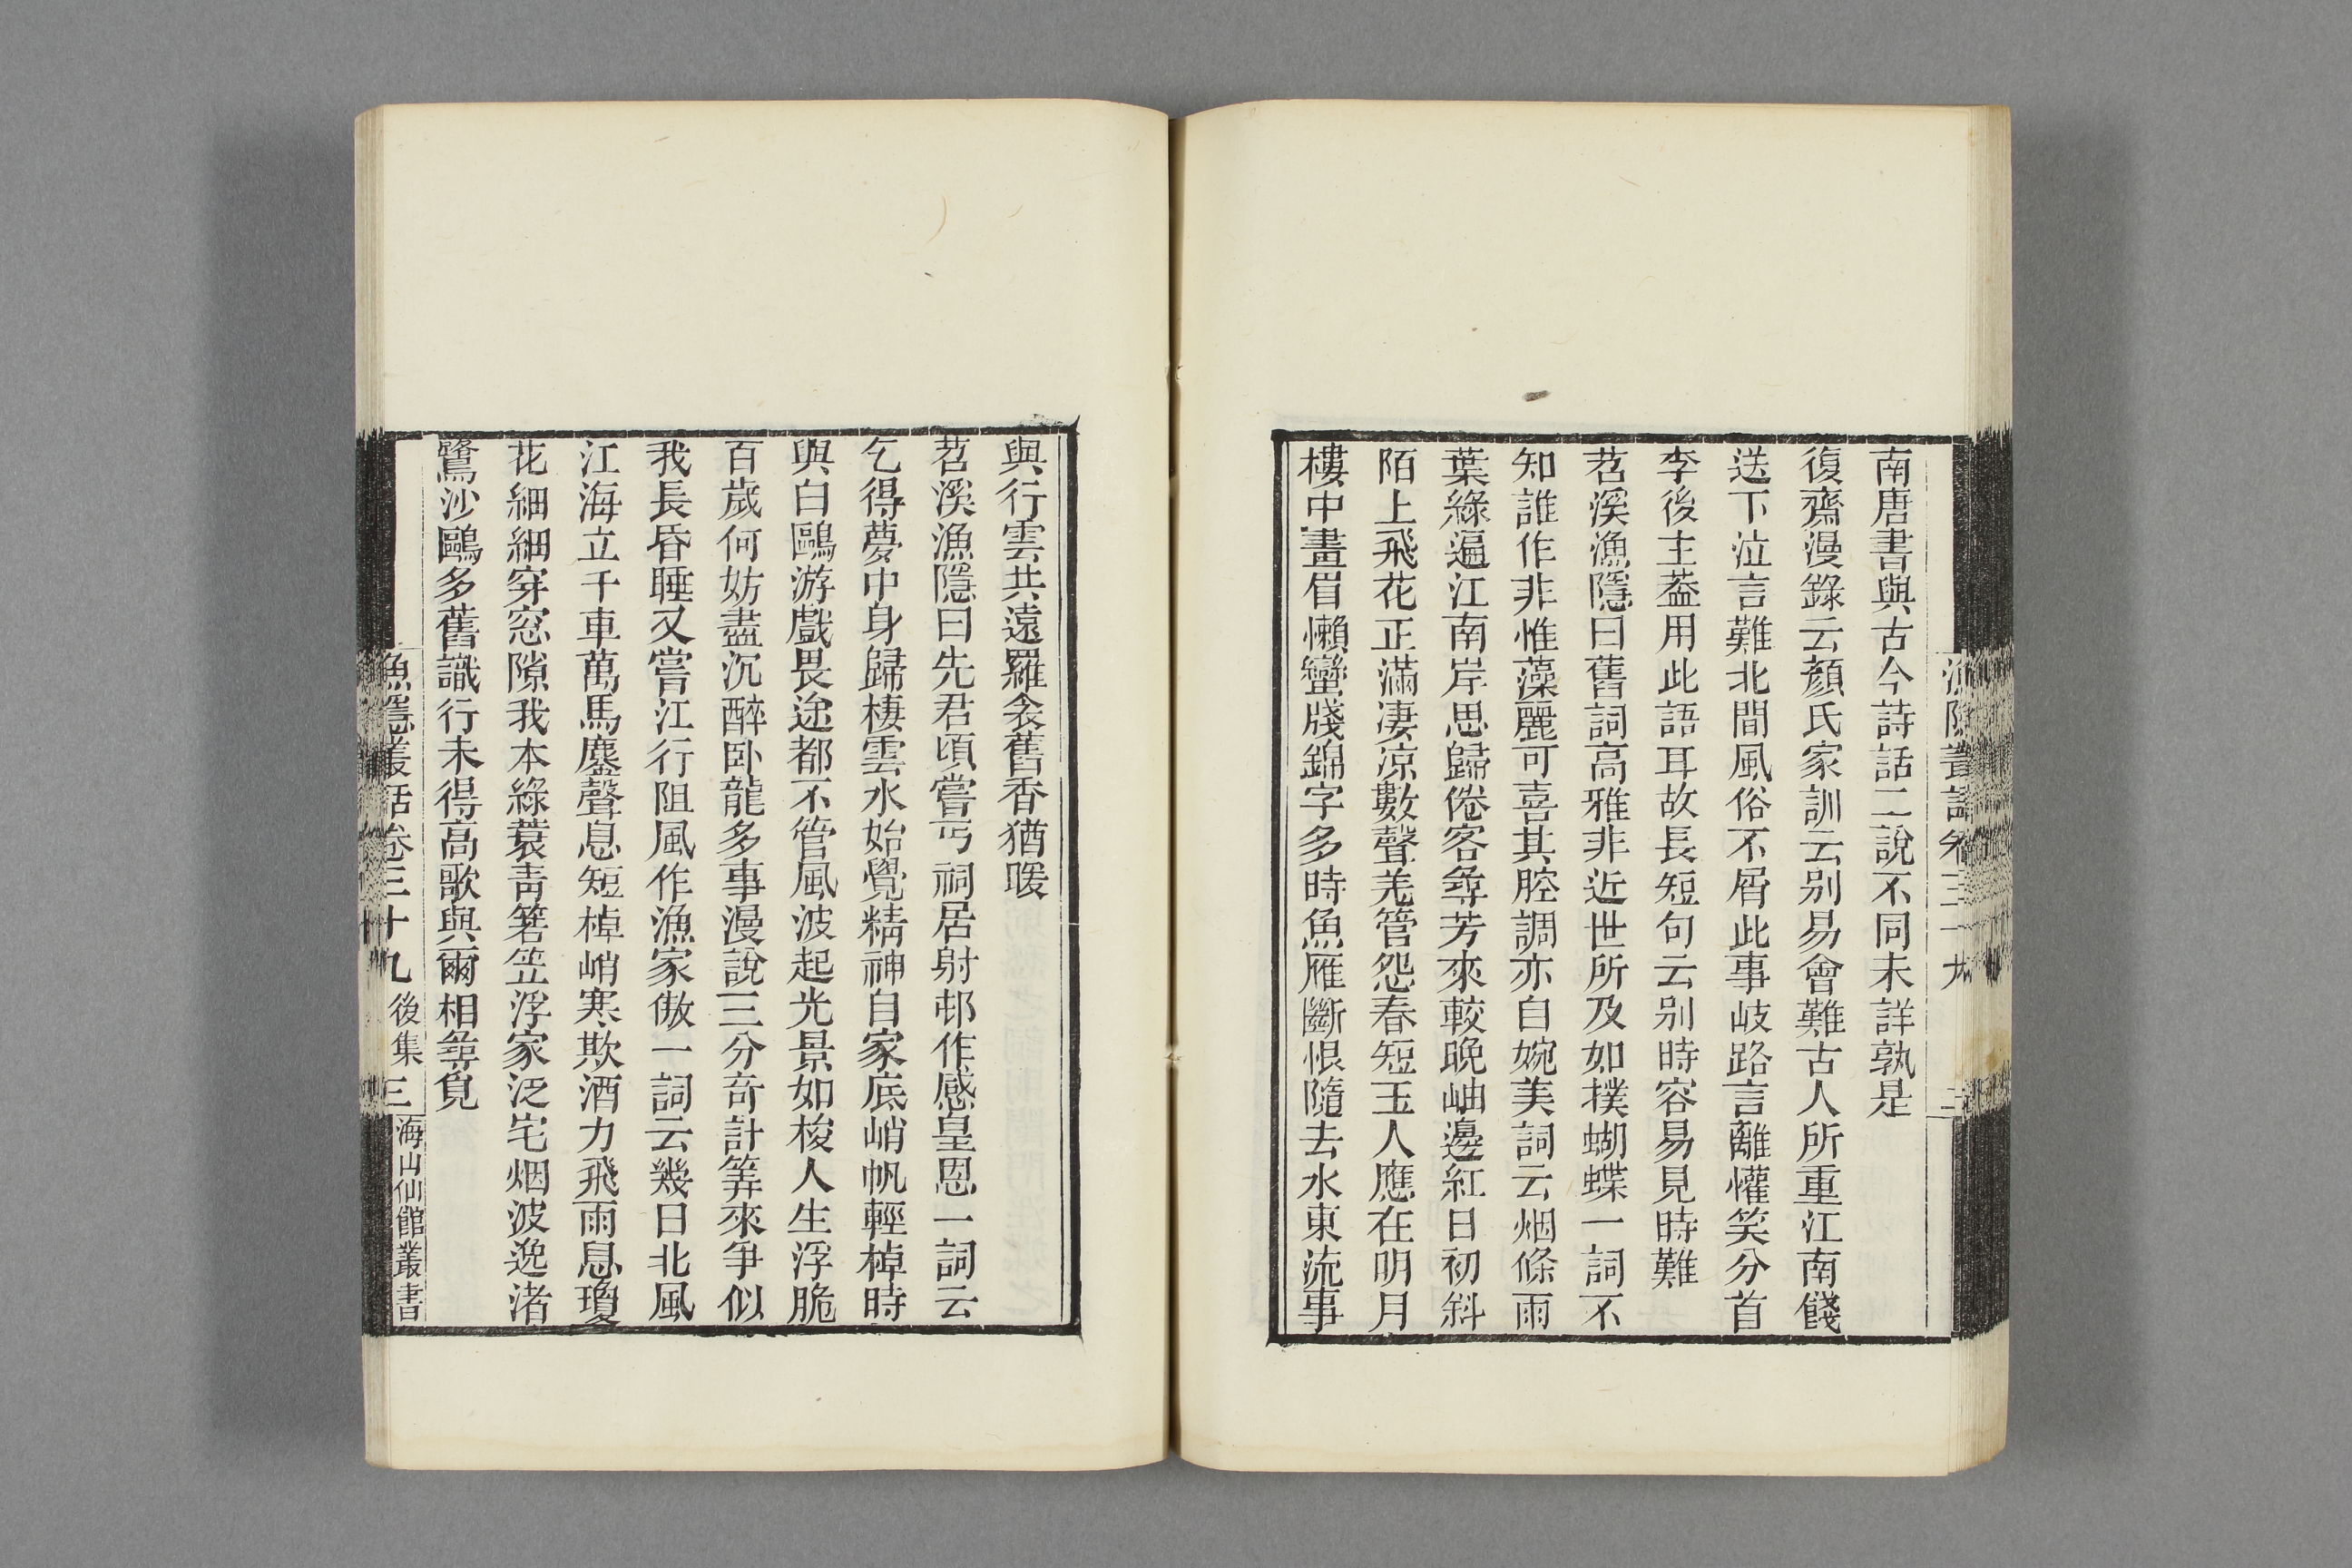 南唐書與古今詩話二說不同未詳孰是
復齋漫錄云顏氏家訓云别易會難古人所重江南餞
送下泣言難北間風俗不屑此事岐路言離懽笑分首
李後主葢用此語耳故長短句云别時容易見時難
苕溪漁隱曰舊詞高雅非近世所及如撲蝴蝶一詞不
知誰作非惟藻麗可喜其腔調亦自婉美詞云烟條雨
葉綠遍江南岸思歸倦客尋芳來較晚岫邊紅日初斜
陌上飛花正滿凄凉數聲羌管怨春短玉人應在明月
樓中畫眉懶蠻牋錦字多時魚雁斷恨隨去水東流事
與行雲共遠羅衾舊香猶暖
苕溪漁隱曰先君頃嘗丐祠居射邨作感皇恩一詞云
乞得夢中身歸棲雲水始覺精神自家底峭帆輕棹時
與白鷗游戲畏途都不管風波起光景如梭人生浮脆
百歲何妨盡沉醉卧龍多事漫說三分奇計筭來爭似
我長昏睡又嘗江行阻風作漁家傲一詞云幾日北風
江海立千車萬馬鏖聲息短棹峭寒欺酒力飛雨息瓊
花細細穿窓隙我本綠蓑青箬笠浮家泛宅烟波逸渚
鷺沙鷗多舊識行未得高歌與爾相尋覓
漁隱叢話卷三十九 後集 三 海山仙館叢書